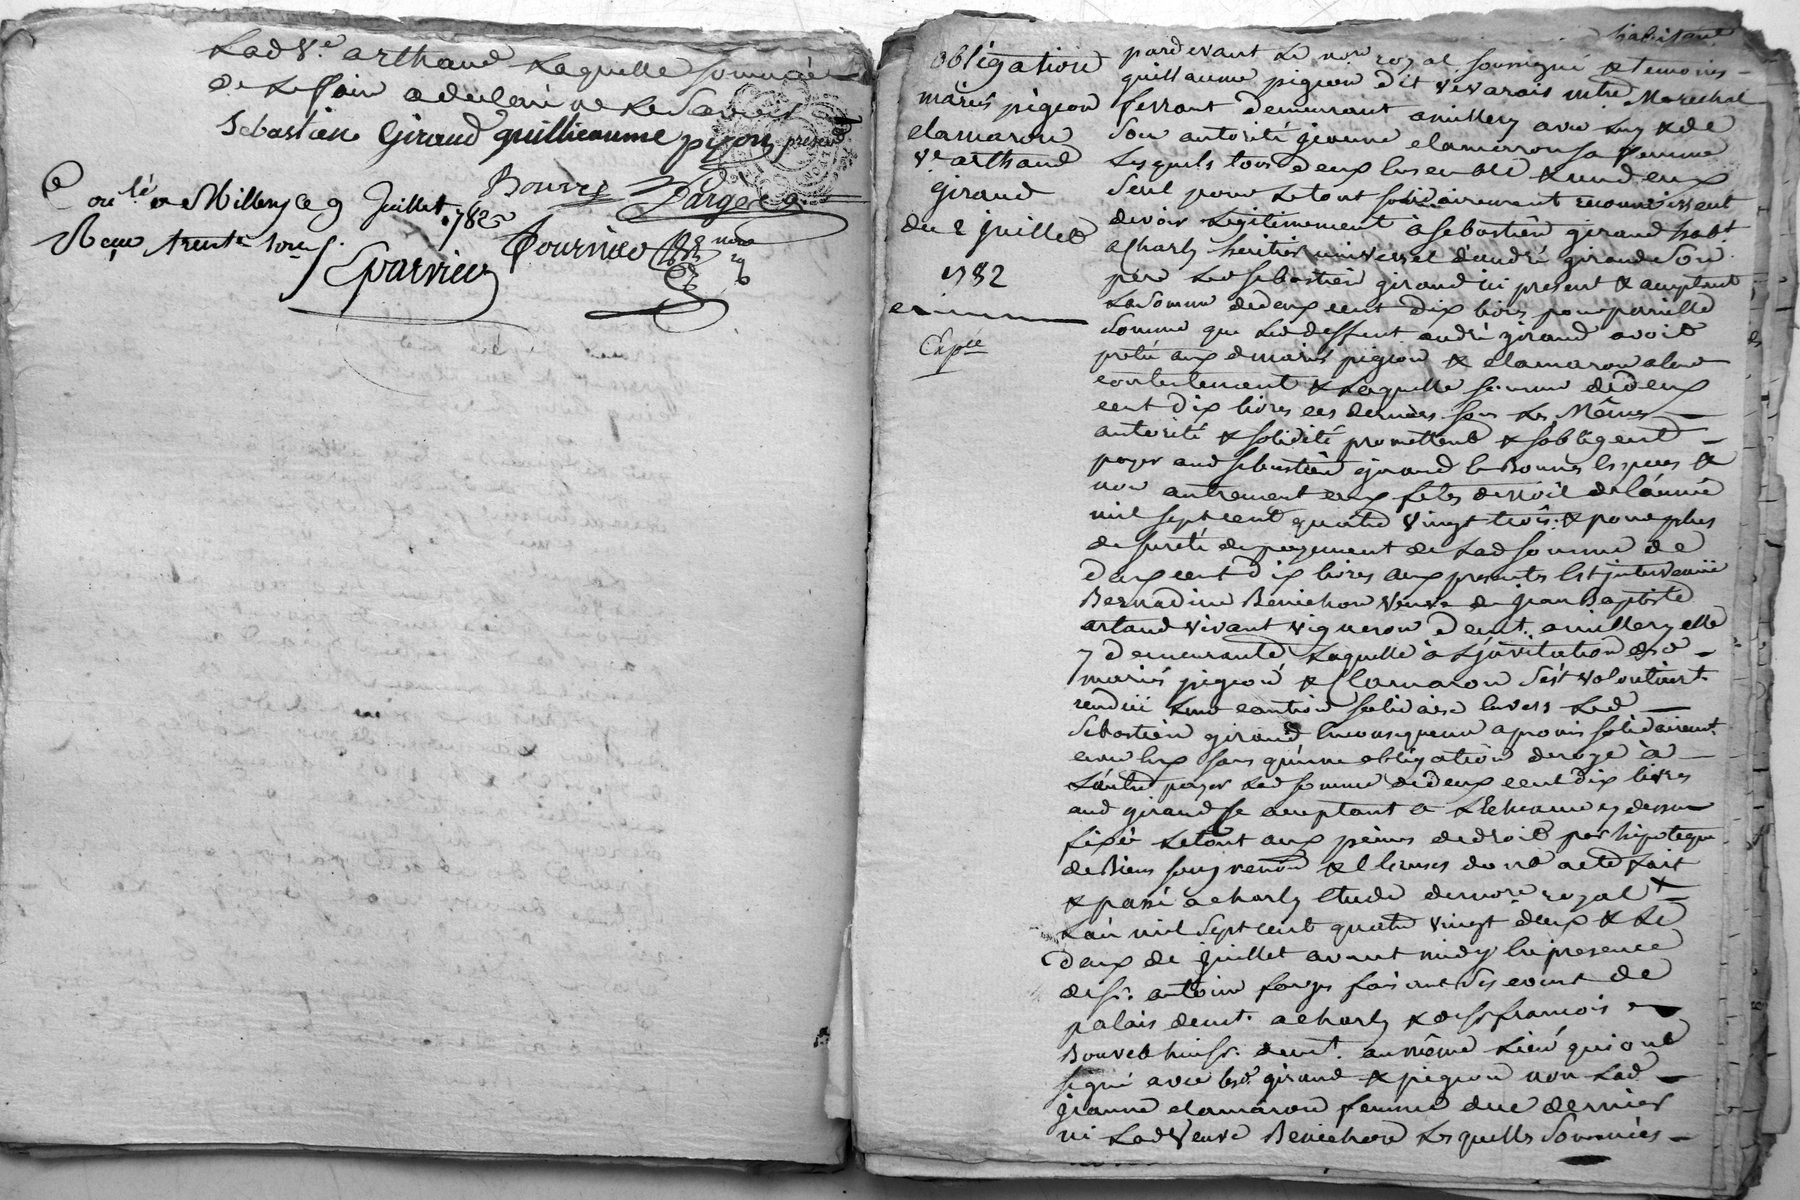 Lad Ve. arthaud Laquelle sommée
de Le faire a declaré ne Le Savoir
Sebastien Giraud guillieaume pijon
Bouvet Fargere
Conlé a Millery ce 9 Juillet 1782
Reçu trente sous
Eparvier
Tournier
obligation
mariés pigeon
clamaron
Ve. arthaud
giraud
du 2 juillet
1782
Expée
pardevant Le nore. royal soussigné & temoins
guillaume pigeon dit vivarais mtre Marechal
ferrant demeurant amillery avec luy & de
Son autorité jeanne clamerron sa femme
Lesquels tous deux Ensemble & un deux
Seul pour Le tout solidairement reconnoissent
devoir Legitimement à sebastien giraud habt.
acharly heritier universel d'andré giraud Son
pere Led sebastien giraud ici present & acceptant
La Somme de deux cent dix livres pour pareille
Somme que Led deffunt andré giraud avoit
preté aux d mariés pigeon & clamaron a leur
contentement & Laquelle somme de deux
cent dix livres ces derniers sous Les Mêmes
autorité & solidité promettent & s'obligent
payer aud sebastien giraud En Bonnes Especes &
non autrement aux fetes de noël de l'année
mil sept cent quatre vingt trois & pour plus
de sureté du payement de Lad somme de
deux cent dix livres aux presentes Est intervenüe
Bernadine Benichon veuve de jean Baptiste
artaud vivant vigneron demt. amillery elle
y demeurante Laquelle à L'invitation desd
mariés pigeon & Clamaron s'est volontairt.
rendüe Leur caution solidaire Envers Led
Sebastien giraud En consequence a promis solidairemt.
avec Eux sans qu'une obligation deroge à
L'autre payer Lad somme de deux cent dix livres
aud giraud ce acceptant a L'Echeance cy dessus
fixée Le tout aux peines de droit par hipoteque
de Biens soumissions & Clauses dont acte fait
& passé a charly Etude de nore. royal
L'an mil Sept cent quatre vingt deux & Le
deux de juillet avant midy En presence
de sr. antoine farges faisant Les
palais demt. acharly & de sr françois
Bouvet huissr. demt. au même Lieu qui ont
signé avec lesd. giraud & pigeon non Lad
jeanne clamaron femme de ce dernier
ni Lad Veuve Benichon Lesquelles Sommées